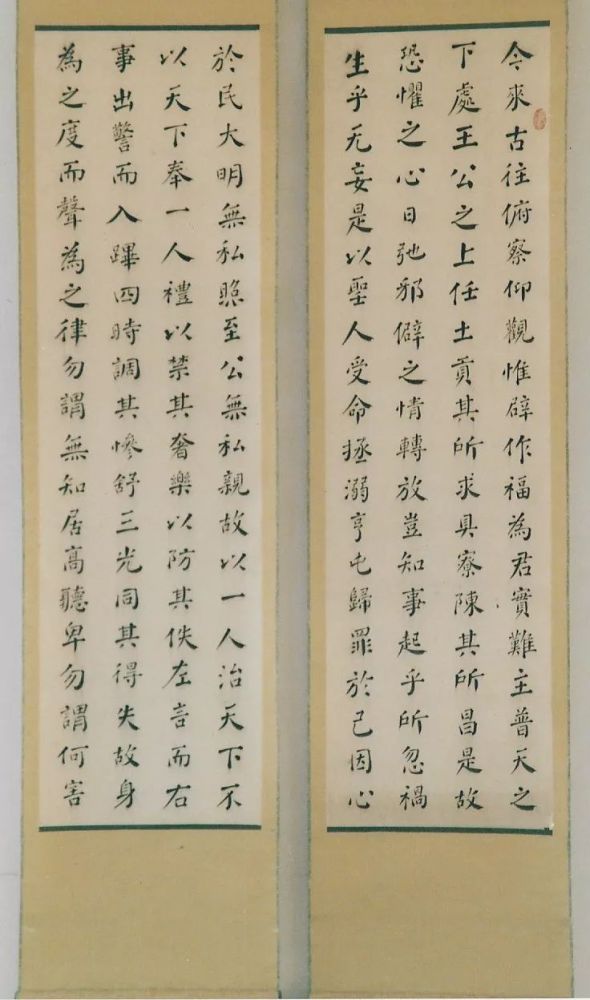 今來古往俯察仰觀惟辟作福為君實難主普天之
下處王公之上任土貢其所求具寮陳其所昌是故
恐懼之心日弛邪僻之情轉放豈知事起乎所忽禍
生乎无妄是以聖人受命拯溺亨屯歸罪於己因心
於民大明無私照至公無私親故以一人治天下不
以天下奉一人禮以禁其奢樂以防其佚左言而右
事出警而入蹕四時調其慘舒三光同其得失故身
為之度而聲為之律勿謂無知居高聽卑勿謂何害